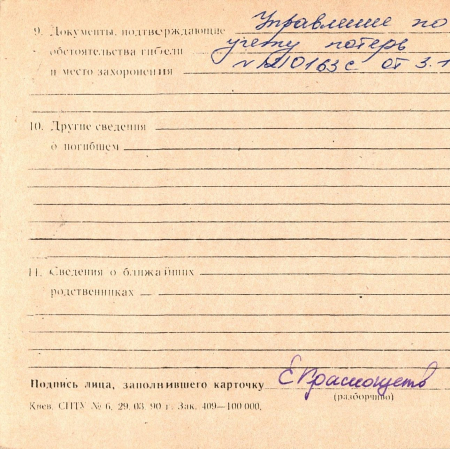 9. Документы, подтверждающие Управление по
обстоятельства гибели учету потерь
и место захоронения № 210163с от 3.1
10. Другие сведения
о погибшем
11. Сведения о ближайших
родственниках
Подпись лица, заполнившего карточку
(разборчиво)
Киев. СПТУ № 6. 29. 03. 90 г. Зак. 409—100 000.